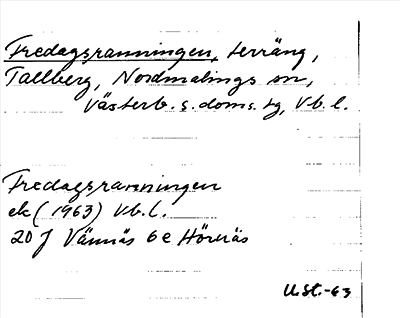 Fredagsranningen, terräng,
Tallberg, Nordmalings sn,
Västerb. s. doms. tg, Vb. l.
Fredagsranningen
ek (1963) Vb. l.
20 J Vännäs 6 e Hörnäs
U.St.-63